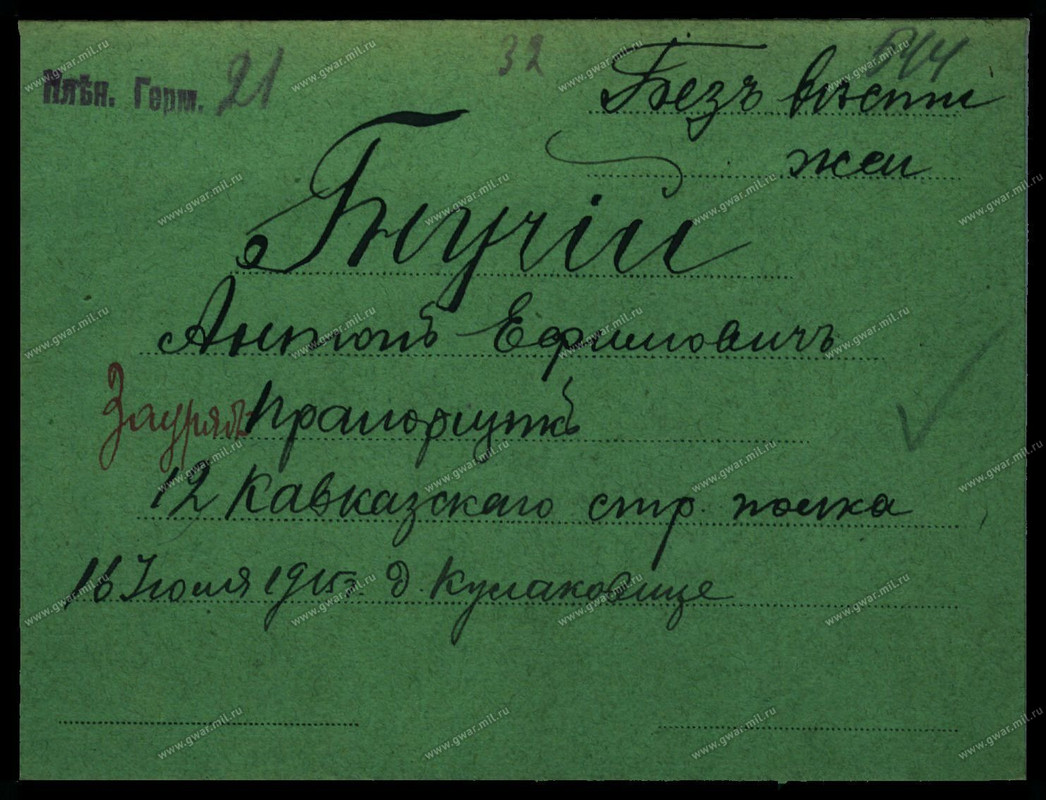 Плѣн. Герм. 21
32
Безъ вѣсти
жен
Бндчій
Антонъ Ефимовичъ
Заурядъ Прапорщикъ
12 Кавказскаго стр. полка
16 Іюля 1915 г. д. Кулаковице
www.gwar.mil.ru